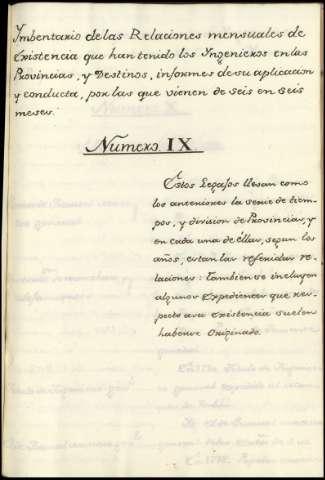 Ymbentario de las Relaciones mensuales de
Existencia que han tenido los Yngenieros en las
Provincias, y Destinos, informes de su aplicacion
y conducta, por las que vienen de seis en seis
meses.
Numero IX.
Estos Legajos llevan como
los anteriores la serie de tiem-
pos, y division de Provincias, y
en cada una de ellas, segun los
años, estan las referidas re-
laciones: tambien se incluyen
algunos Expedientes que res-
pecto a su existencia suelen
haberse originado.